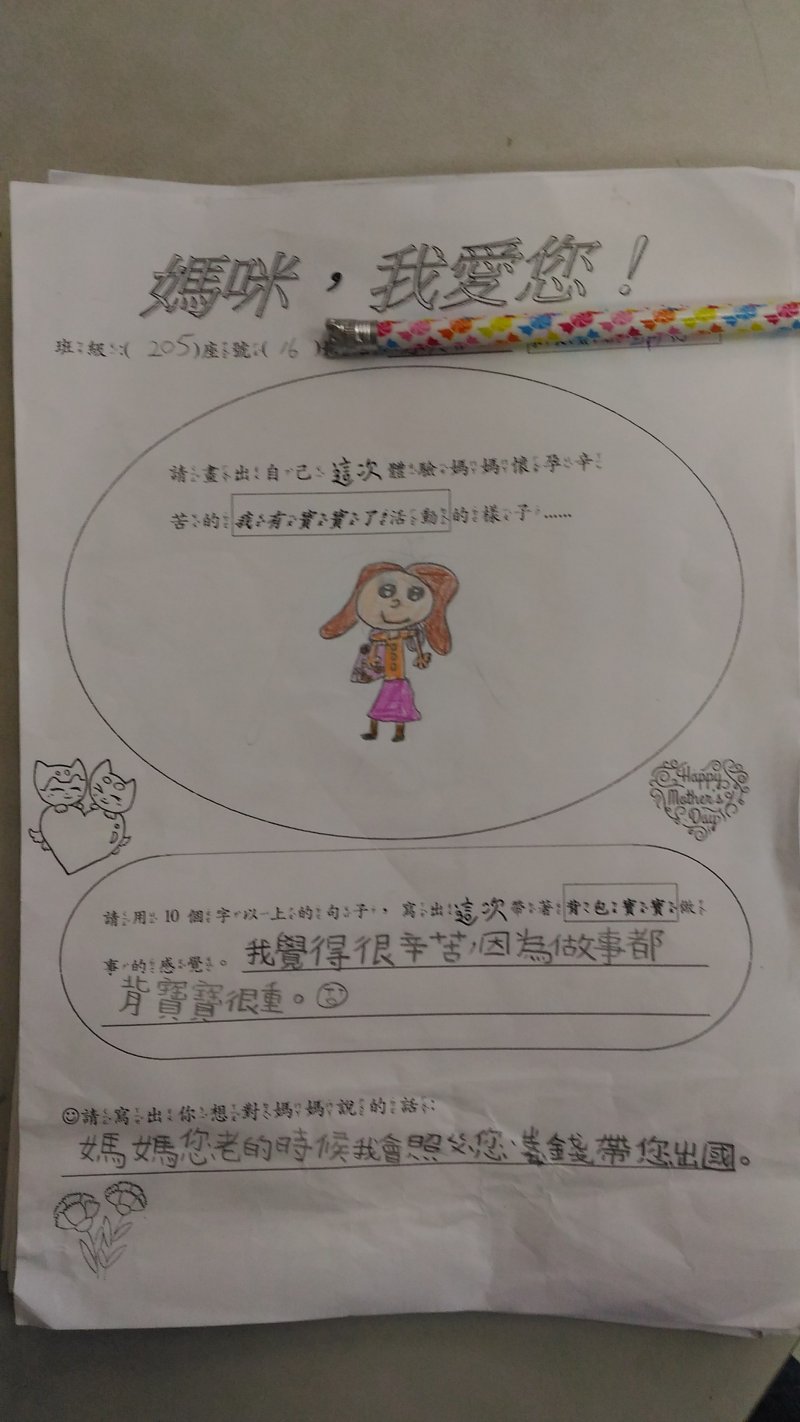 媽咪,我愛您!
班級:( 205)座號:( 16 )
請畫出自己這次體驗媽媽懷孕辛
苦的我有寶寶了活動的樣子……
Happy
Mother's
Day
請用 10 個字以上的句子,寫出這次帶著背包寶寶做
事的感覺。我覺得很辛苦,因為做事都
背寶寶很重。
☺請寫出你想對媽媽說的話:
媽媽您老的時候我會照父您,賺錢帶您出國。